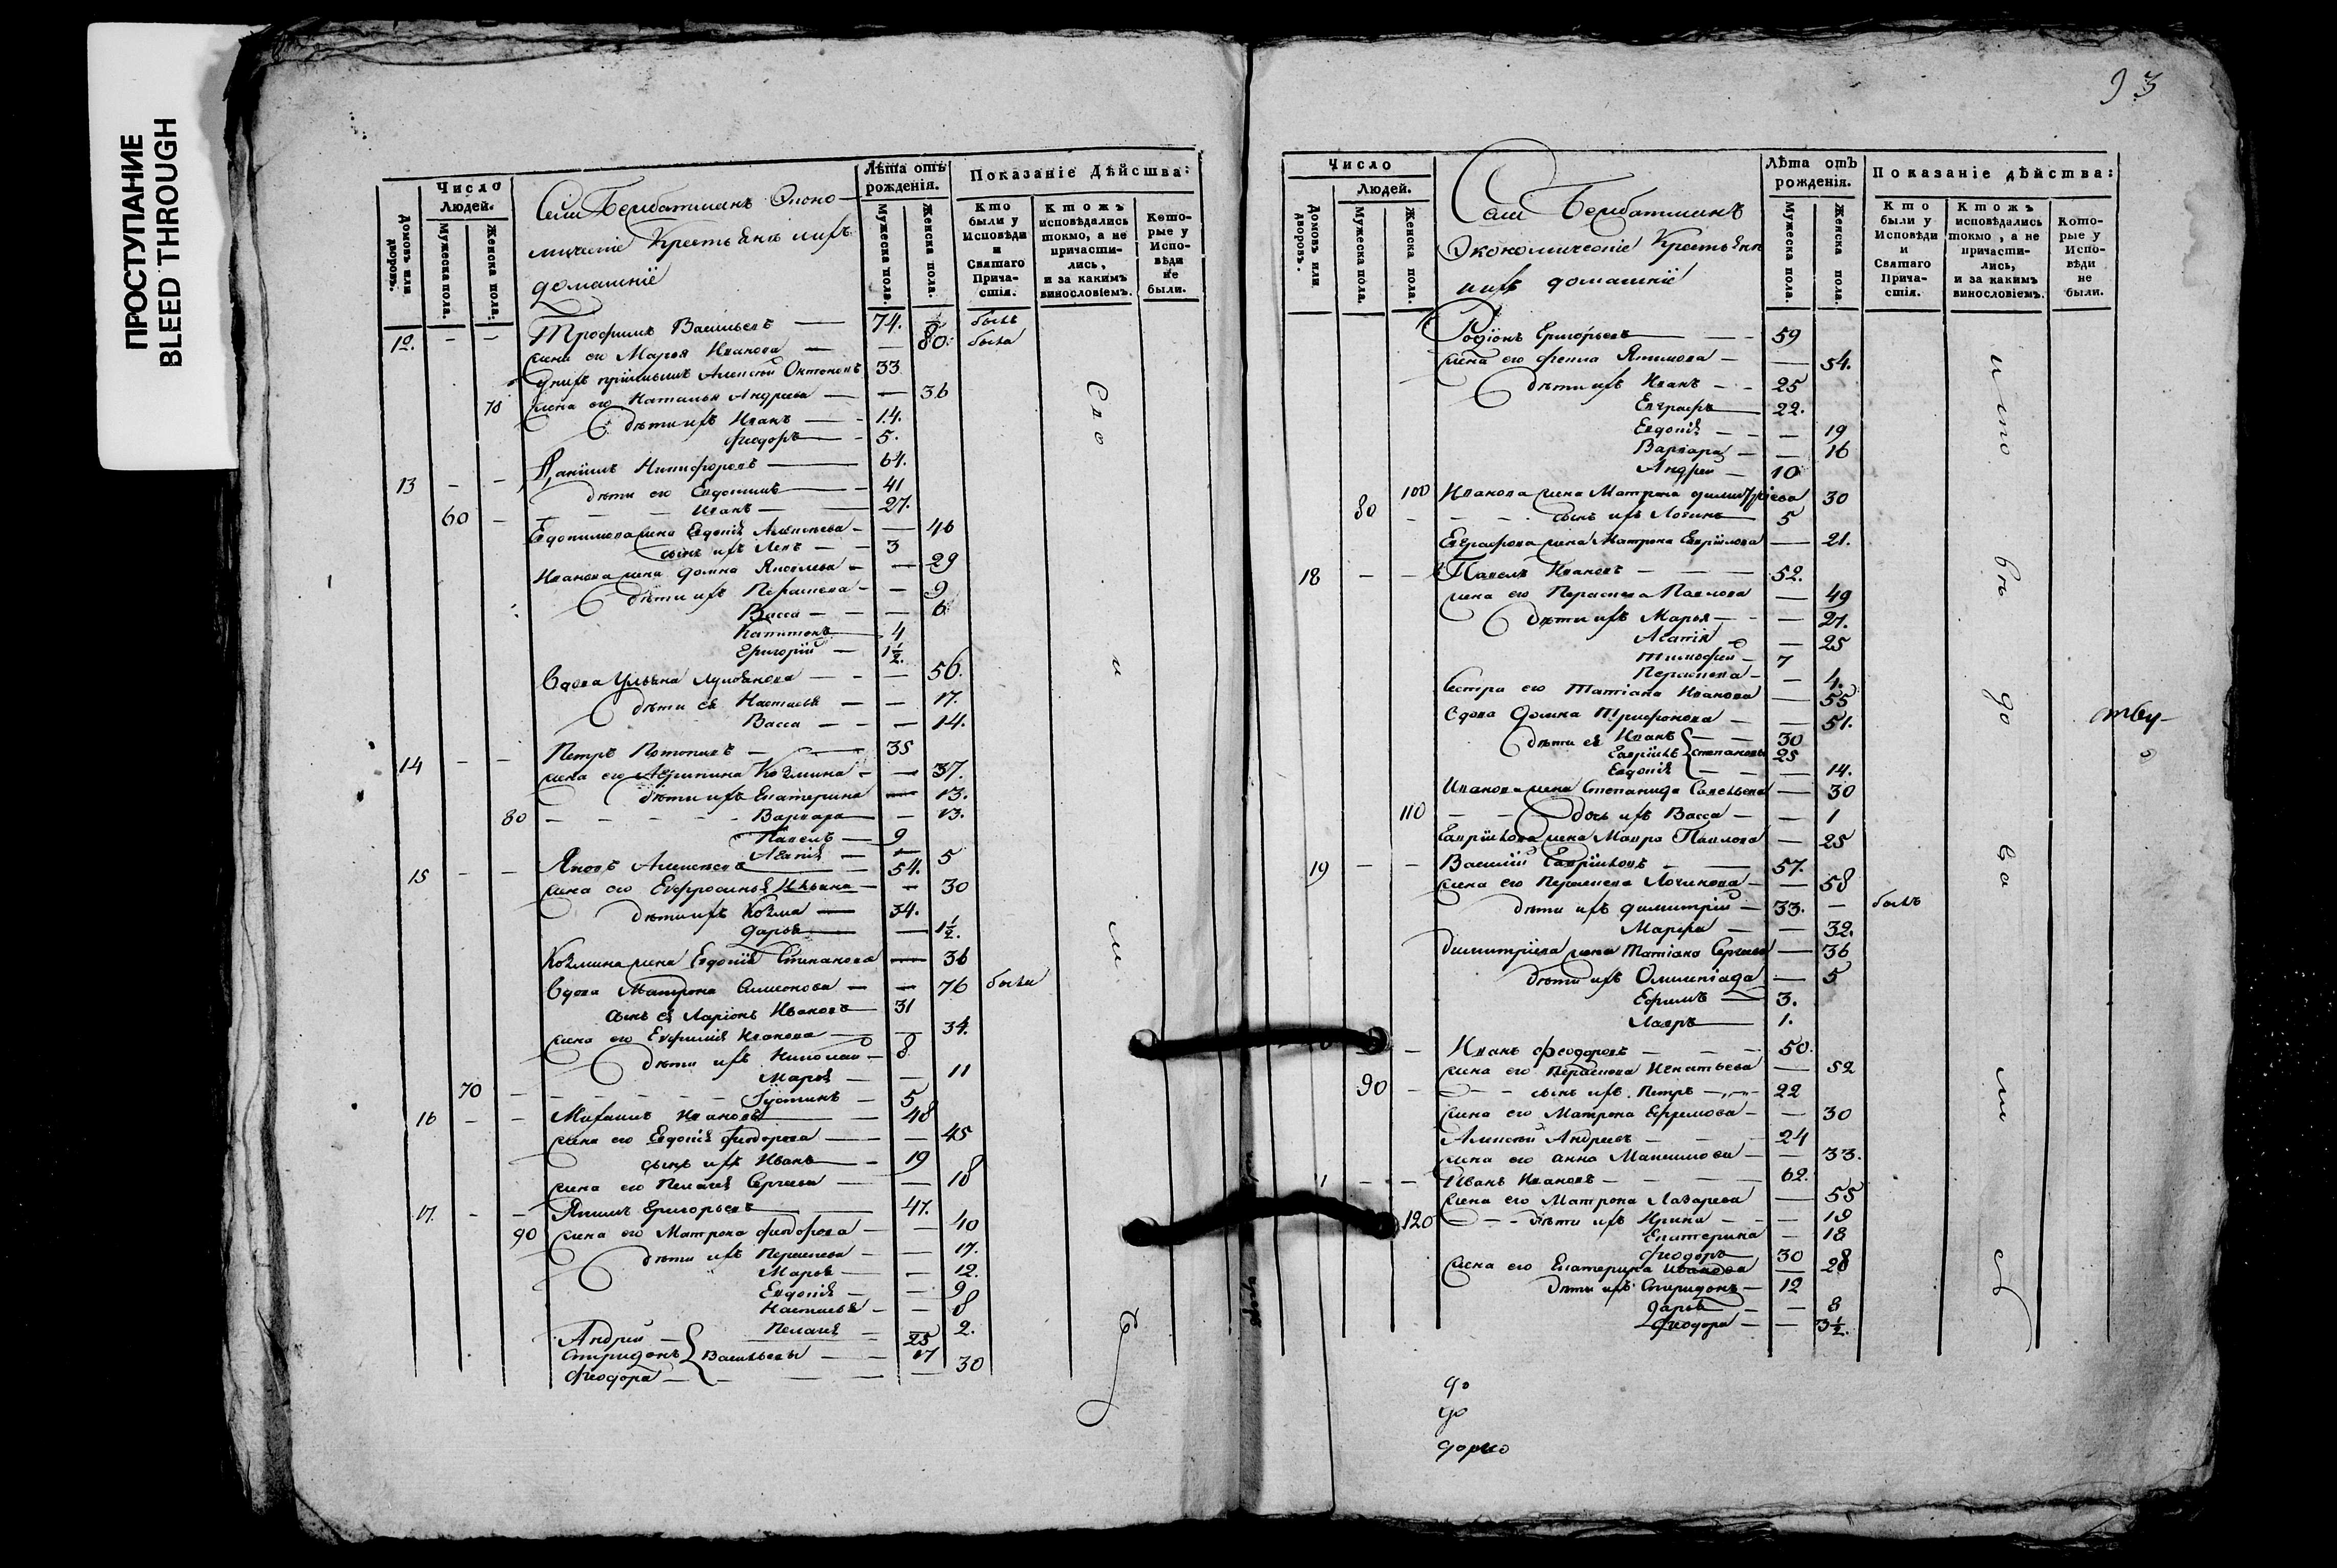 ПРОСТУПАНИЕ
BLEED THROUGH
Число
Людей.
Домовъ или дворовъ.
Мужеска пола.
Женска пола.
Лѣта отъ рожденія.
Мужеска пола.
Женска пола.
Показаніе дѣйства:
Кто были у Исповѣди и Святаго Причастія.
Ктожъ исповѣдались токмо, а не причастились, и за какимъ винословіемъ.
Которые у Исповѣди не были.
домашніе
12. — — Трофимъ Васильевъ — 74. былъ
жена его Марья Иванова — — 80. была
33
70 жена его Наталья Андреева — — 36
дѣти ихъ Иванъ — 14.
Феодоръ — 5.
13 — — Данїилъ Никифоровъ — 64.
дѣти его Евдокимъ — 41
60 — Иванъ — 27.
Евдокимова жена Евдокія Алексѣева — — 46
сынъ ихъ Левъ — 3
Иванова жена Домна Яковлева — — 29
дѣти ихъ Параскева — — 9
Васса — — 6
Капитонъ — 4
Григорій — 1½.
Вдова Ульяна — — 56.
дѣти ея Настасья — — 17.
Васса — — 14.
14 — — Петръ — 35
жена его Агрипина Козмина — — 37.
дѣти ихъ Екатерина — 13.
80 — Варвара — — 13.
Павелъ — 9
Агапія — — 5
15 — — Яковъ Алексѣевъ — 54.
жена его Евфросинья Ильина — — 30
дѣти ихъ Козма — 34.
Дарья — — 1½.
Козмина жена Евдокія Степанова — 36
Вдова Матрона Симеонова — — 76 была
сынъ ея Ларіонъ Ивановъ — 31
жена его Евфимія Иванова — — 34.
дѣти ихъ Николай — 8
Марья — — 11
70 — Іустинъ — 5
16 — — Михаилъ Ивановъ — 48
жена его Евдокія Феодорова — — 45
сынъ ихъ Иванъ — 19
жена его Пелагея Сергеева — — 18
17. — — Якимъ Григорьевъ — 47.
90 жена его Матрона Феодорова — — 40
дѣти ихъ Параскева — — 17.
Марья — — 12.
Евдокія — — 9
Настасья — — 8
Пелагея — — 2.
Андрей — 25
Спиридонъ Васильевы — 17
Феодора — — 30
93
Число
Людей.
Домовъ или дворовъ.
Мужеска пола.
Женска пола.
Экономическіе Крестьяне
ихъ домашніе
Лѣта отъ рожденія.
Мужеска пола.
Женска пола.
Показаніе дѣйства:
Кто были у Исповѣди и Святаго Причастія.
Ктожъ исповѣдались токмо, а не причастились, и за какимъ винословіемъ.
Которые у Исповѣди не были.
Родіонъ Григорьевъ — 59
жена его Фекла Якимова — — 54.
дѣти ихъ Иванъ — 25
Евграфъ — 22.
Евдокія — — 19
Варвара — — 16
Андрей — 10
100 Иванова жена Матрона Димитріева 30
80 — сынъ ихъ Логинъ 5
Евграфова жена Матрона Гавріилова — 21.
18 — — Павелъ Ивановъ — 52.
жена его Параскева Павлова — 49
дѣти ихъ Марья — — 27.
Агапія — 25
Тимофей — 7
Параскева — — 4.
Сестра его Татіана Иванова — 55
Вдова Домна Трифонова — — 51.
дѣти ея Иванъ — 30
Гавріилъ Степановы 25
Евдокія — — 14.
Иванова жена Степанида Савельева — 30
110 — дочь ихъ Васса — — 1
Гавріилова жена Мавра Павлова — 25
19 — — Василій Гавріиловъ — 57.
жена его Параскева Логинова — — 58
дѣти ихъ Димитрій — 33. — былъ
Марфа — — 32.
Димитріева жена Татіана Сергеева — 36
дѣти ихъ Олимпіада — 5
Ефимъ — 3.
Лавръ — 1.
Иванъ Феодоровъ — 50.
жена его Параскева Игнатьева — 52
90 — сынъ ихъ Петръ — 22
жена его Матрона Ефремова — — 30
Алексѣй Андреевъ — 24
жена его Анна Максимова — — 33.
Иванъ Ивановъ — 62.
жена его Матрона Лазарева — 55
120 — дѣти ихъ Ирина — — 19
Екатерина — 18
Феодоръ 30
жена его Екатерина Иванова — 28
дѣти ихъ Спиридонъ — 12
Дарья — — 8
Феодора — — 3½.